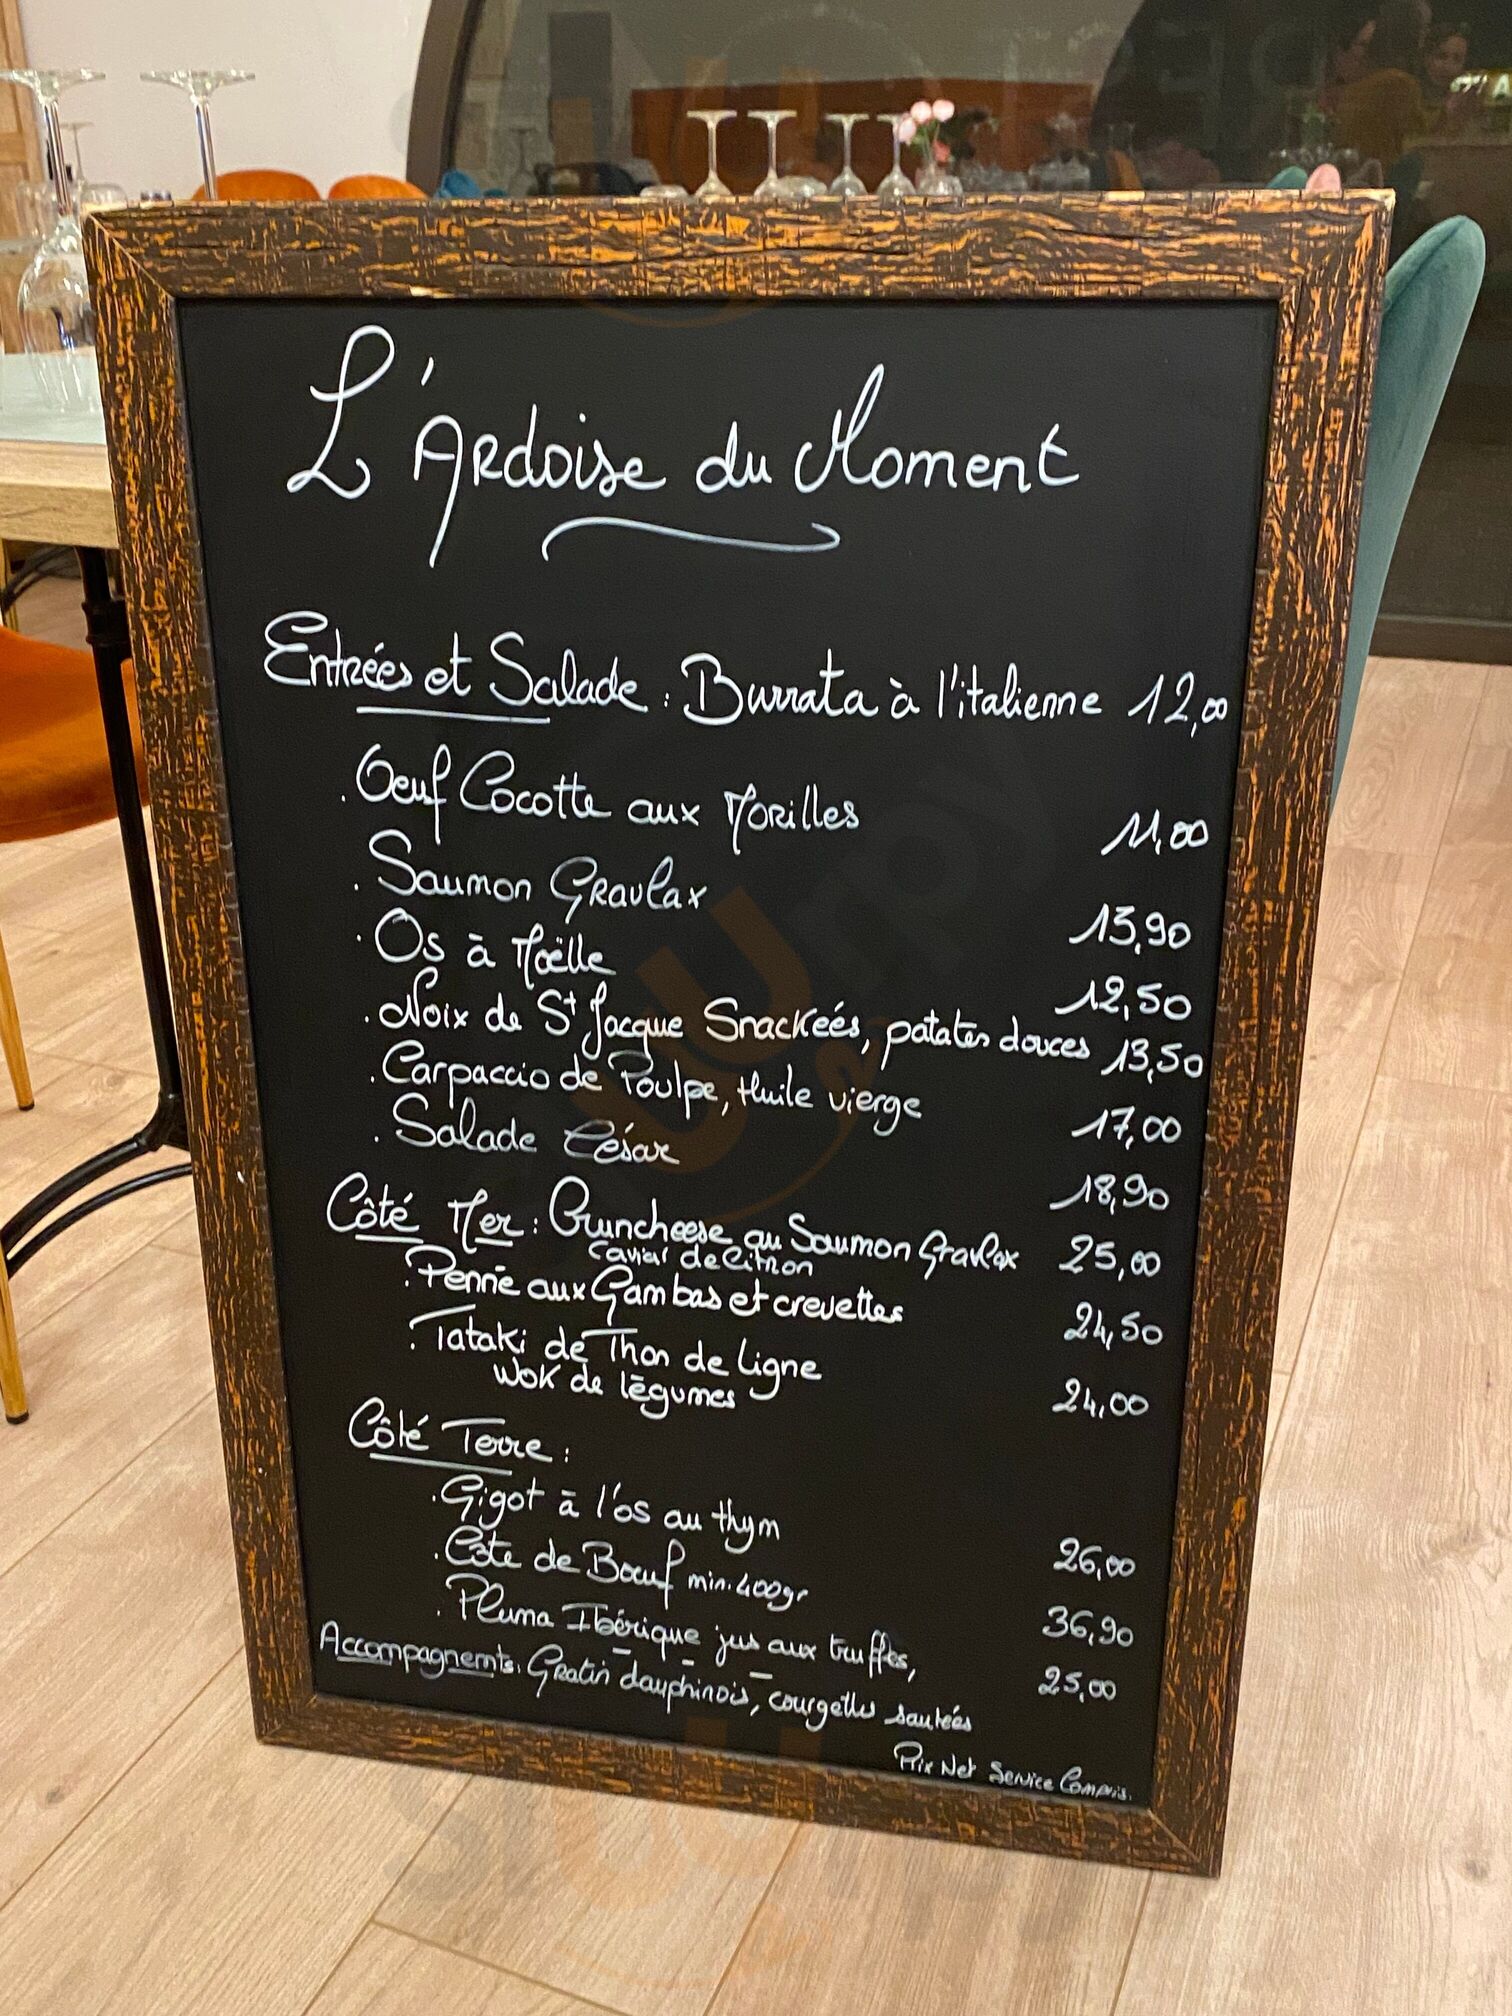 L'Ardoise du Moment
Entrées et Salade : Burrata à l'italienne 12,00
. Oeuf Cocotte aux Morilles 11,00
. Saumon Gravlax 13,90
. Os à Moëlle 12,50
. Noix de St Jacque Snackeés, patates douces 13,50
. Carpaccio de Poulpe, Huile vierge 17,00
. Salade César 18,90
Côté Mer : Cruncheese au Saumon Gravlax 25,00
Caviar de Citron
. Penne aux Gambas et crevettes 24,50
. Tataki de Thon de ligne 24,00
Wok de légumes
Côté Terre :
. Gigot à l'os au thym 26,00
. Côte de Boeuf min. 400gr 36,90
. Pluma Ibérique jus aux truffes, 25,00
Accompagnemts. Gratin dauphinois, courgettes sautées
Prix Net Service Compris.